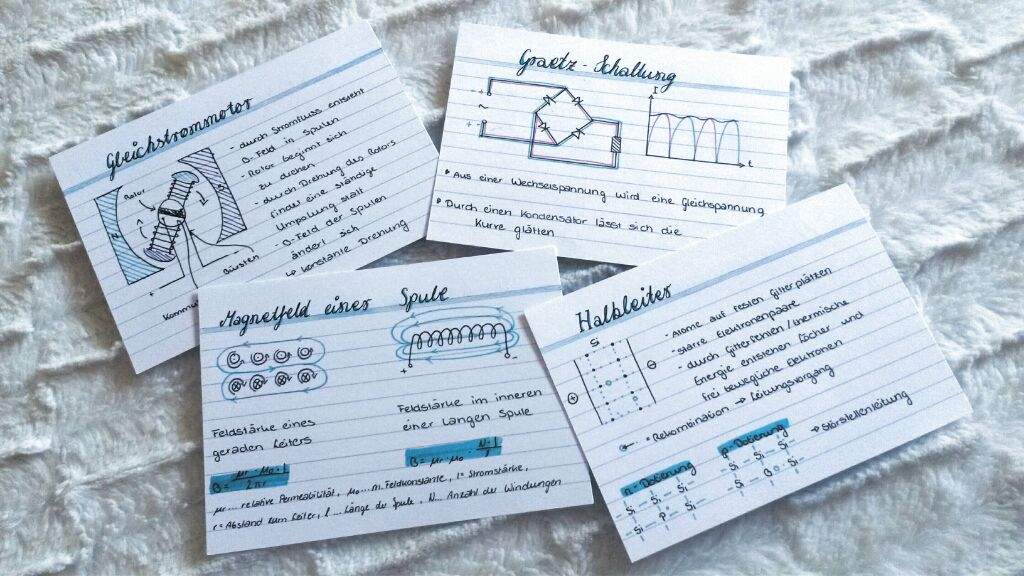 Gleichstrommotor
Rotor
N
S
Bürsten
+
-
Kommu
- durch Stromfluss entsteht
B-Feld in Spulen
- Rotor beginnt sich
zu drehen
- durch Drehung des Rotors
findet eine ständige
Umpolung statt
- B-Feld der Spulen
ändert sich
↳ konstante Drehung
Graetz - Schaltung
~
I
t
• Aus einer Wechselspannung wird eine Gleichspannung
• Durch einen Kondensator lässt sich die
Kurve glätten
Magnetfeld eines Spule
+
-
Feldstärke eines
geraden Leiters
B = μr · μ0 · I / 2πr
Feldstärke im inneren
einer langen Spule
B = μr · μ0 · N·I / l
μr ... relative Permeabilität, μ0 ... m. Feldkonstante, I = Stromstärke,
r = Abstand zum Leiter, l ... Länge der Spule, N ... Anzahl der Windungen
Halbleiter
Si
⊕
⊖
- Atome auf festen Gitterplätzen
- starre Elektronenpaare
- durch Gitterfehler/thermische
Energie entstehen Löcher und
frei bewegliche Elektronen
• Rekombination → Leitungsvorgang
n - Dotierung
- Si - Si -
- Si - P - Si
p - Dotierung
- Si - Si -
- Si - B - Si
→ Störstellenleitung